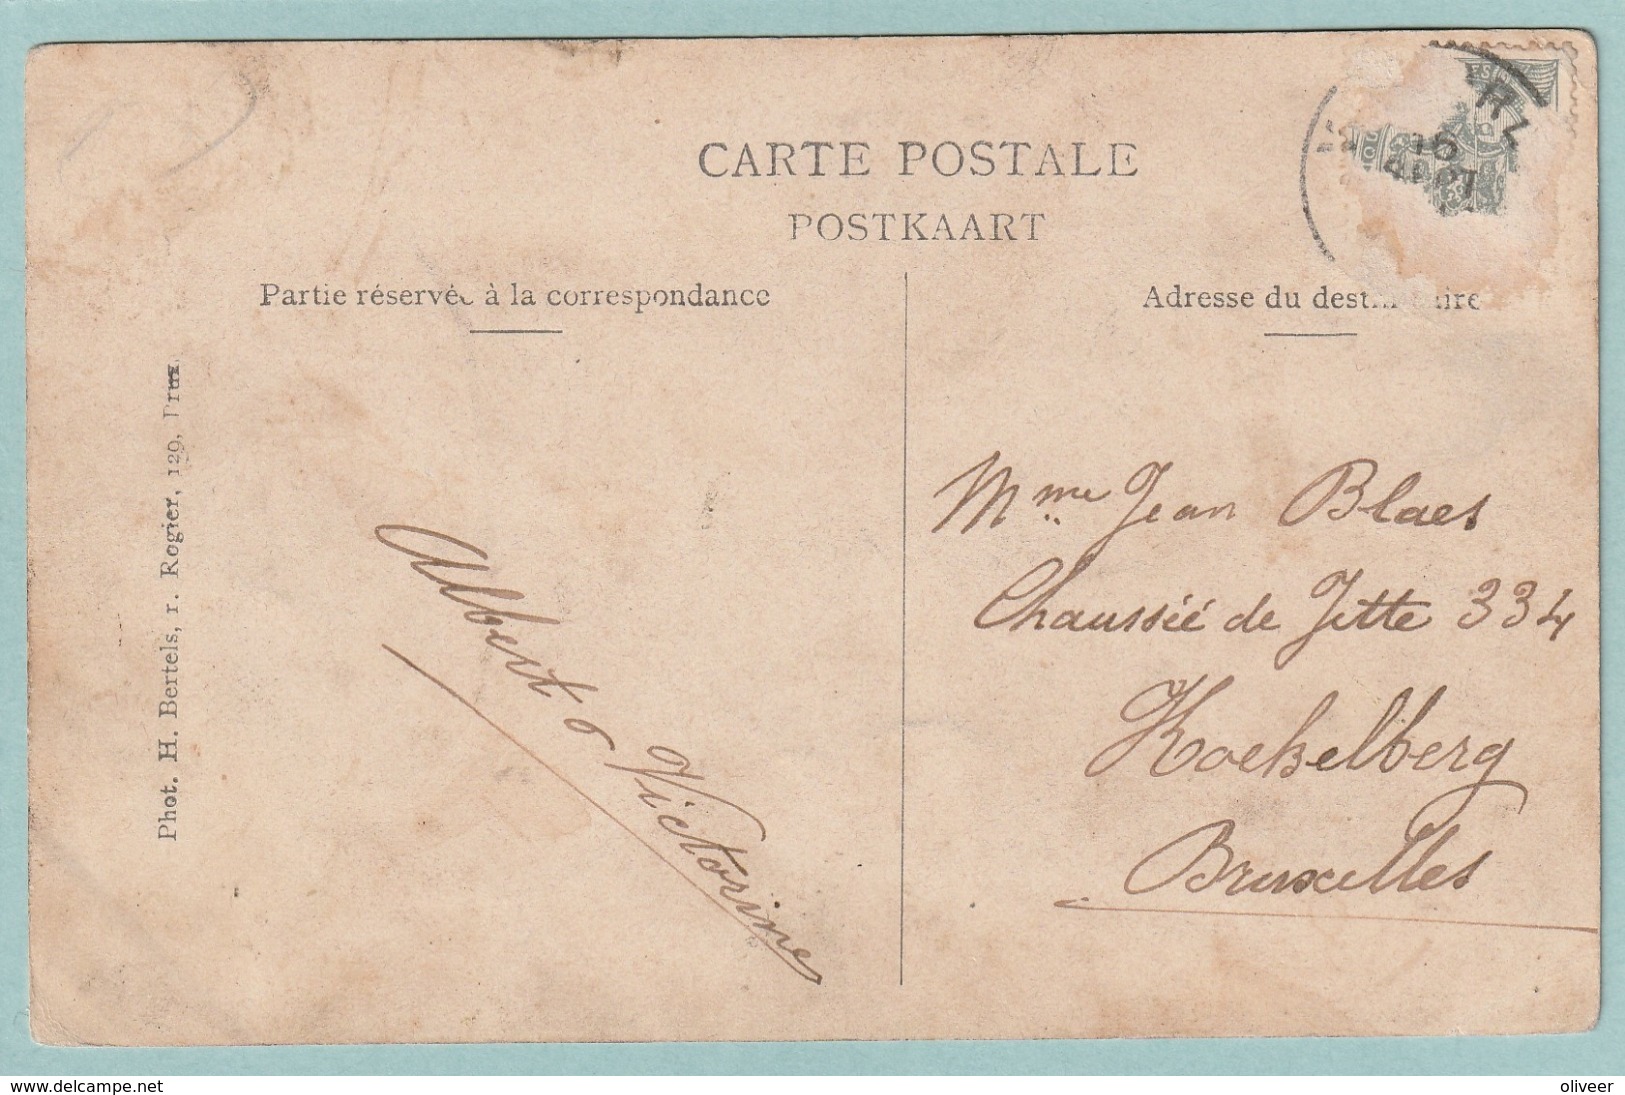 CARTE POSTALE
POSTKAART
Partie réservée à la correspondance
Adresse du destinataire
Phot. H. Bertels, r. Rogier, 129, Brux.
Albert & Victorine
Mme Jean Blaes
Chaussée de Jette 334
Koekelberg
Bruxelles
www.delcampe.net
oliveer